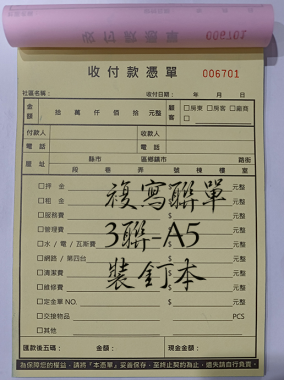 收付款憑單
006701
社區名稱： 收付日期： 年 月 日
金額 拾 萬 仟 佰 拾 元整 顧客 □房東 □房客 □廠商 □
付款人 收款人
電話 電話
區址 縣市 區鄉鎮市 路街
段 巷 弄 號 棟 樓 室
□押金 $ 元整
□租金 $ 元整
□服務費 $ 元整
□管理費 $ 元整
□水/電/瓦斯費 $ 元整
□網路/第四台 $ 元整
□清潔費 $ 元整
□維修費 $ 元整
□定金單NO. $ 元整
□交接物品 PCS
□其他
複寫聯單
3聯-A5
裝釘本
匯款後五碼： 金額： 現金金額：
為保障您的權益，請將「本憑單」妥善保存，至終止契約為止，遺失請自行負責。